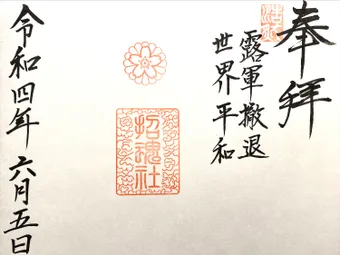 奉拝
露軍撤退
世界平和
招魂社
令和四年六月五日